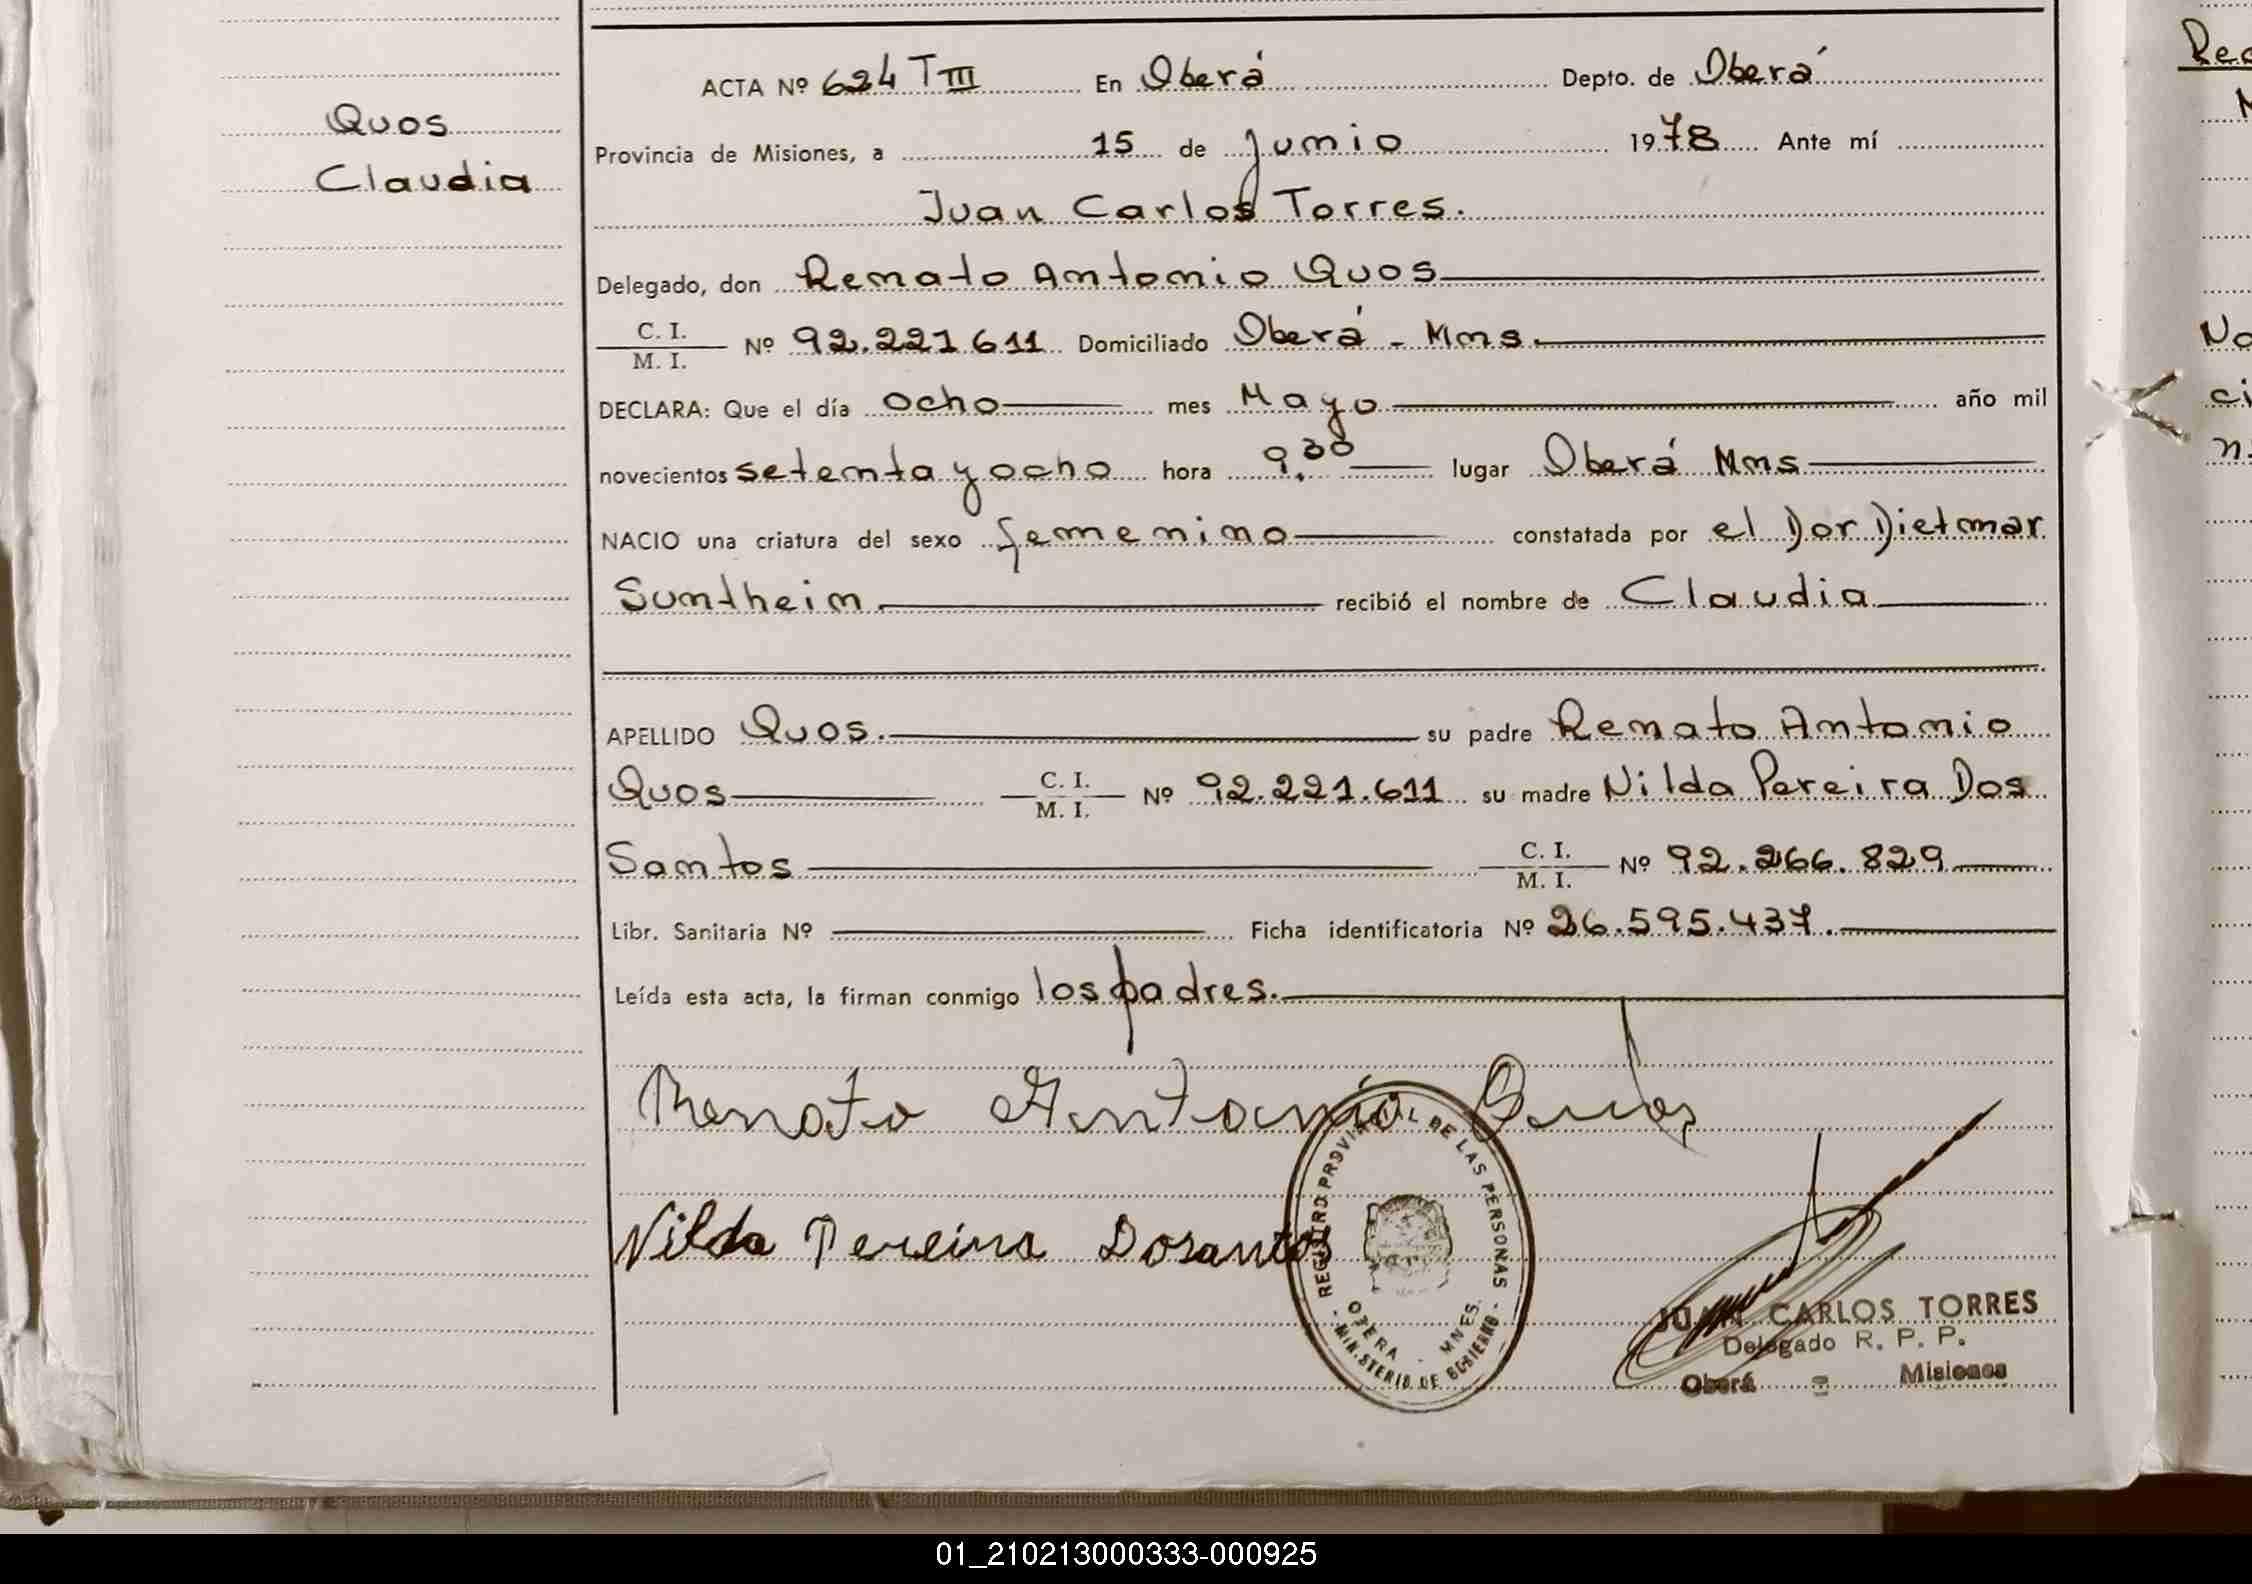 Quos
Claudia
ACTA Nº 624 T III En Oberá Depto. de Oberá
Provincia de Misiones, a 15 de Junio 1978 Ante mí
Juan Carlos Torres.
Delegado, don Renato Antonio Quos
C. I.
M. I. Nº 92.221.611 Domiciliado Oberá - Mnes.
DECLARA: Que el día ocho mes Mayo año mil
novecientos setenta y ocho hora 9.30 lugar Oberá Mnes
NACIO una criatura del sexo femenino constatada por el Dor Dietmar
Suntheim recibió el nombre de Claudia
APELLIDO Quos. su padre Renato Antonio
Quos C. I.
M. I. Nº 92.221.611 su madre Nilda Pereira Dos
Santos C. I.
M. I. Nº 92.266.829
Libr. Sanitaria Nº Ficha identificatoria Nº 26.595.437.
Leída esta acta, la firman conmigo los padres.
Renato Antonio Quos
Nilda Pereira Dosantos
REGISTRO PROVINCIAL DE LAS PERSONAS
OBERA - MNES.
- MINISTERIO DE GOBIERNO -
JUAN CARLOS TORRES
Delegado R. P. P.
Oberá - Misiones
01_210213000333-000925